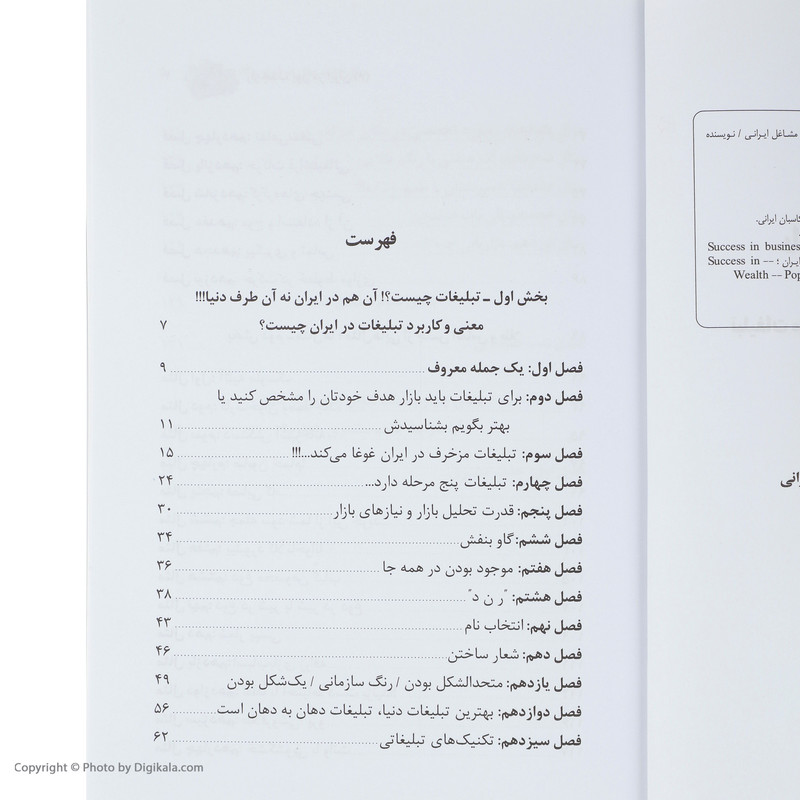 مشاغل ایرانی / نویسنده
کاسبان ایرانی.
Success in business
ایران ؛ -- Success in
Wealth -- Pop
فهرست
بخش اول ـ تبلیغات چیست؟! آن هم در ایران نه آن طرف دنیا!!!
معنی و کاربرد تبلیغات در ایران چیست؟ ۷
فصل اول: یک جمله معروف ۹
فصل دوم: برای تبلیغات باید بازار هدف خودتان را مشخص کنید یا
بهتر بگویم بشناسیدش ۱۱
فصل سوم: تبلیغات مزخرف در ایران غوغا می‌کند...!!! ۱۵
فصل چهارم: تبلیغات پنج مرحله دارد... ۲۴
فصل پنجم: قدرت تحلیل بازار و نیازهای بازار ۳۰
فصل ششم: گاو بنفش ۳۴
فصل هفتم: موجود بودن در همه جا ۳۶
فصل هشتم: "ر ن د" ۳۸
فصل نهم: انتخاب نام ۴۳
فصل دهم: شعار ساختن ۴۶
فصل یازدهم: متحدالشکل بودن / رنگ سازمانی / یک‌شکل بودن ۴۹
فصل دوازدهم: بهترین تبلیغات دنیا، تبلیغات دهان به دهان است ۵۶
فصل سیزدهم: تکنیک‌های تبلیغاتی ۶۲
Copyright © Photo by Digikala.com